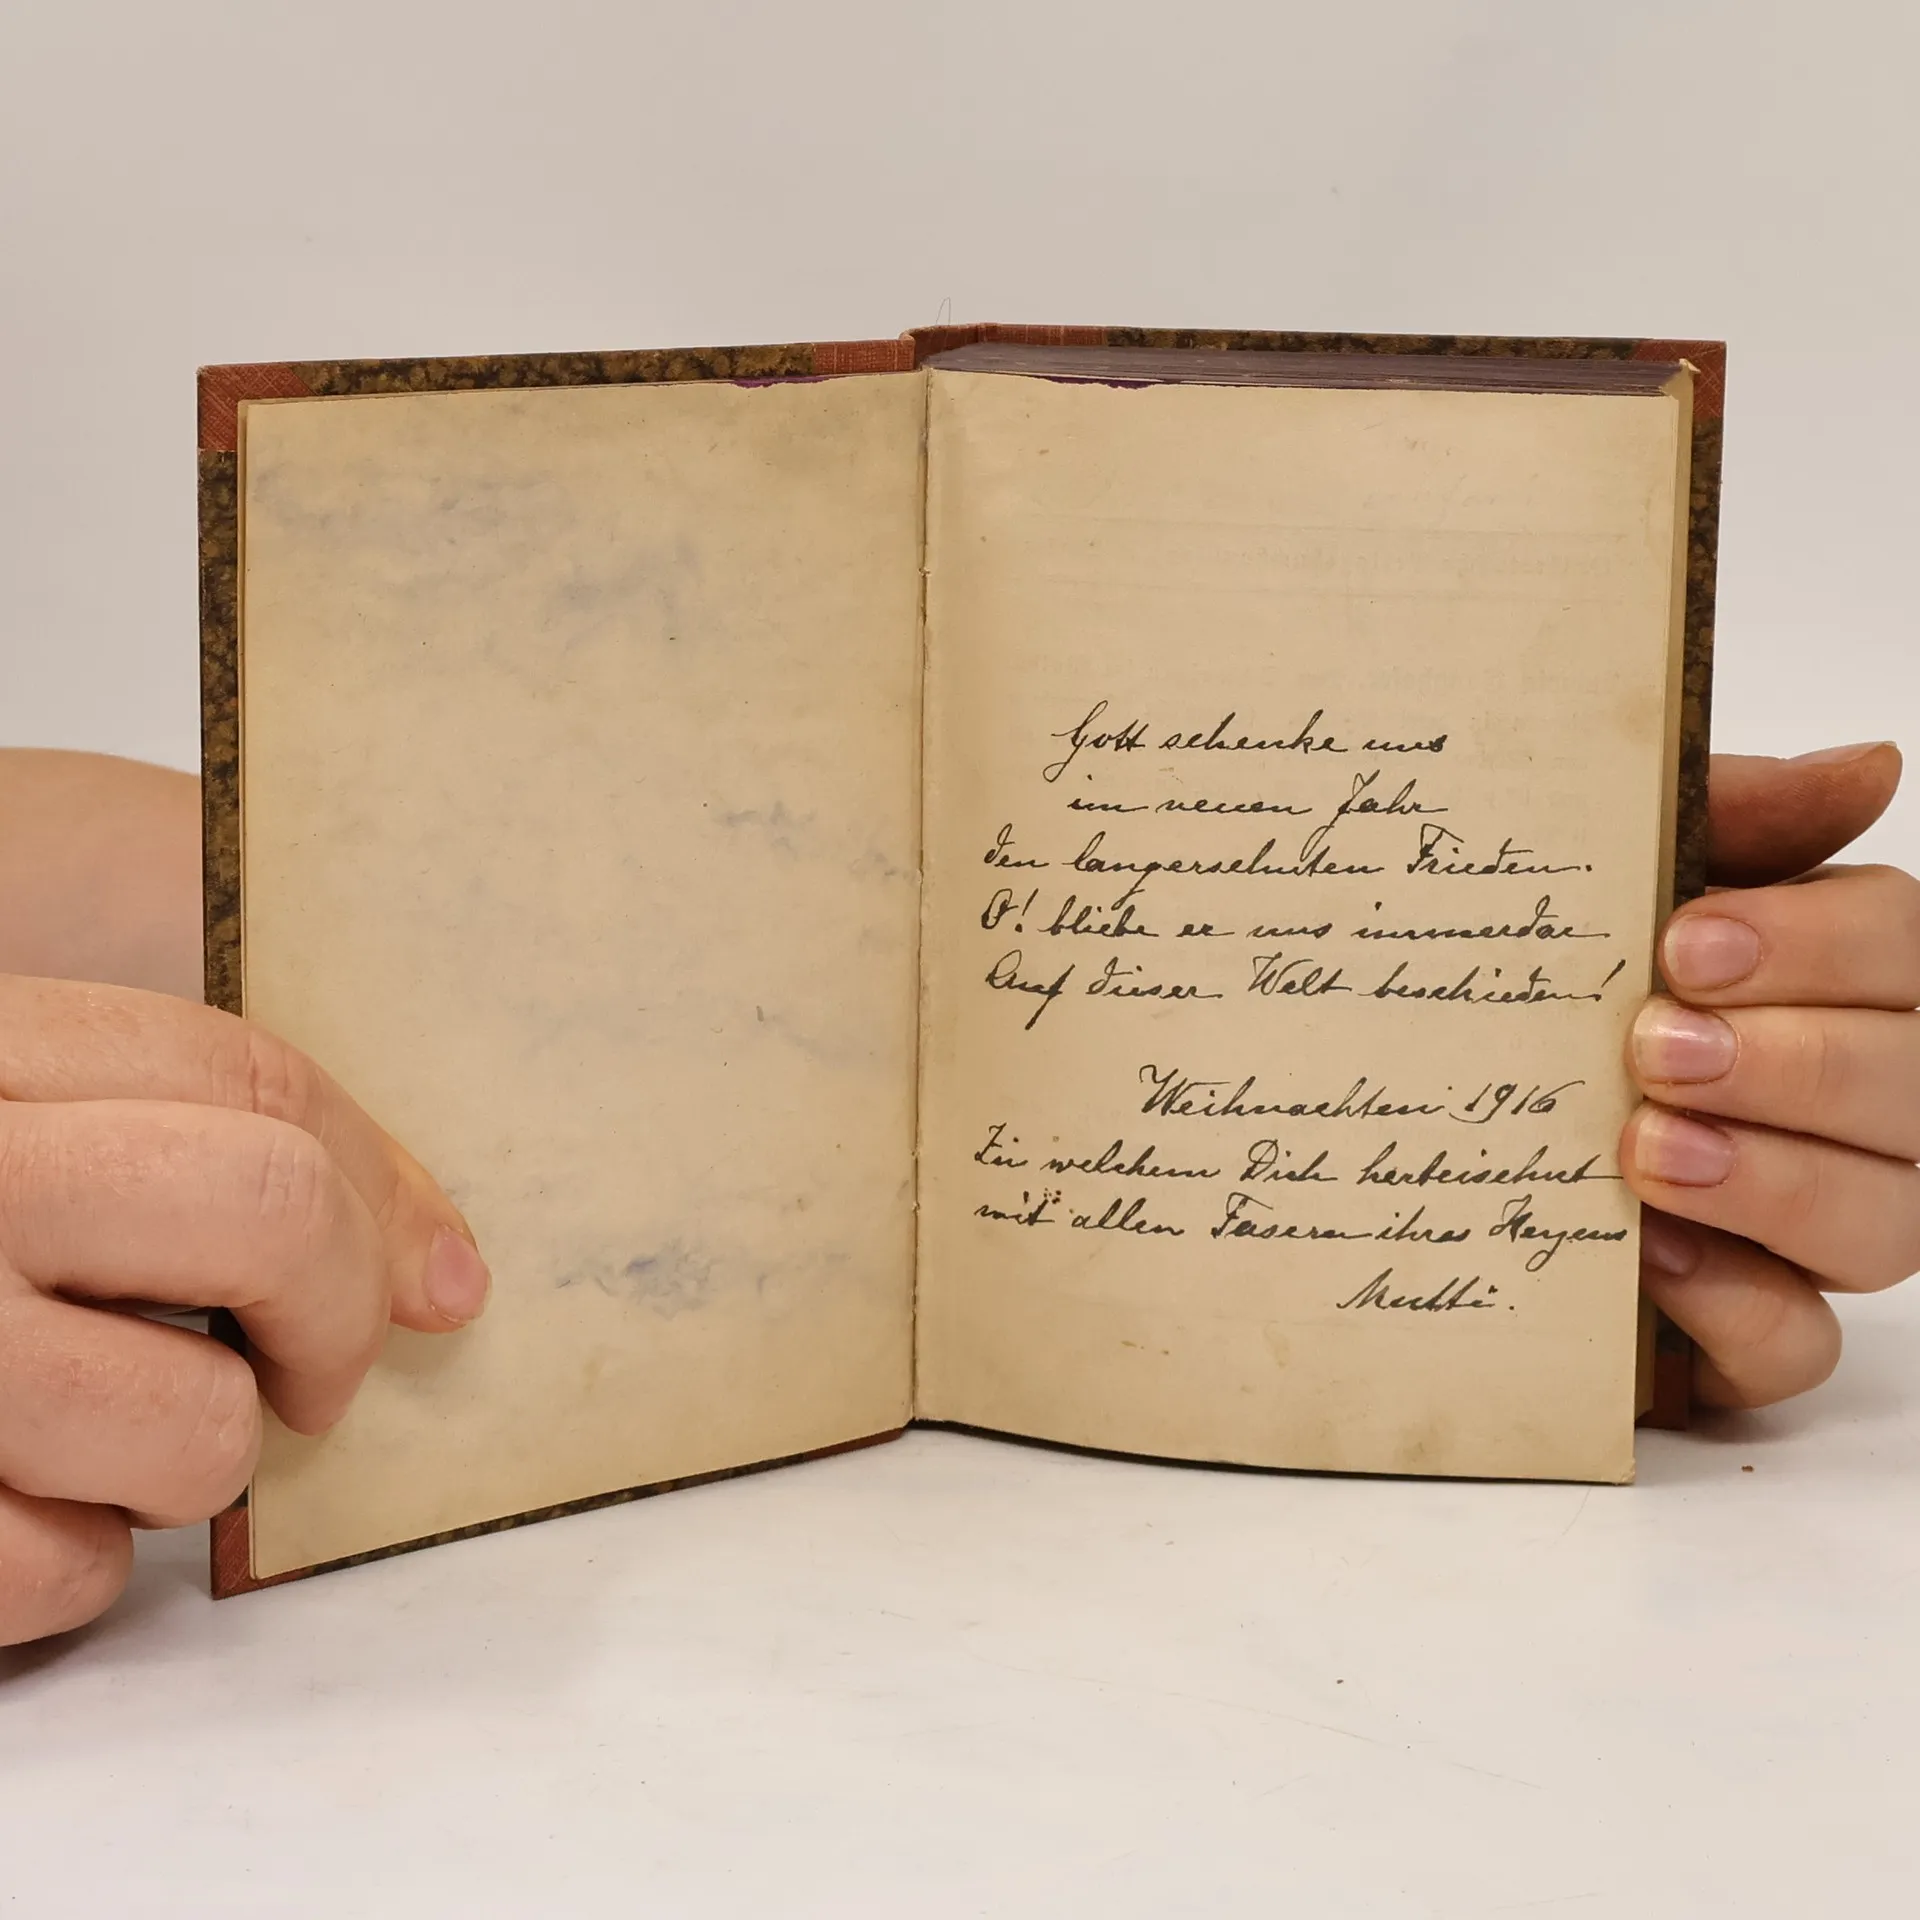 Gott schenke uns
im neuen Jahr
den langersehnten Frieden.
O! bliebe er uns immerdar
Auf dieser Welt beschieden!
Weihnachten 1916
In welchem Dich herbeisehnt
mit allen Fasern ihres Herzens
Mutti.